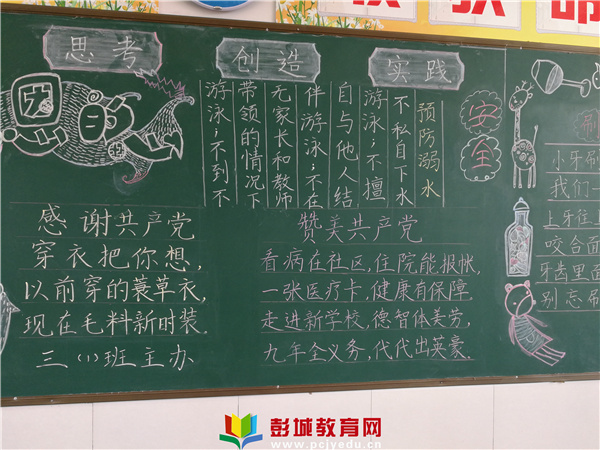 思考
创造
实践
预防溺水
不私自下水
游泳;不擅
自与他人结
伴游泳;不在
无家长和教师
带领的情况下
游泳;不到不
安全
感谢共产党
穿衣把你想,
以前穿的蓑草衣,
现在毛料新时装.
三(1)班主办
赞美共产党
看病在社区,住院能报帐,
一张医疗卡,健康有保障.
走进新学校,德智体美劳,
九年全义务,代代出英豪.
刷
小牙刷
我们一
上牙往
咬合面
牙齿里面
别忘刷
彭城教育网
www.pcjyedu.cn